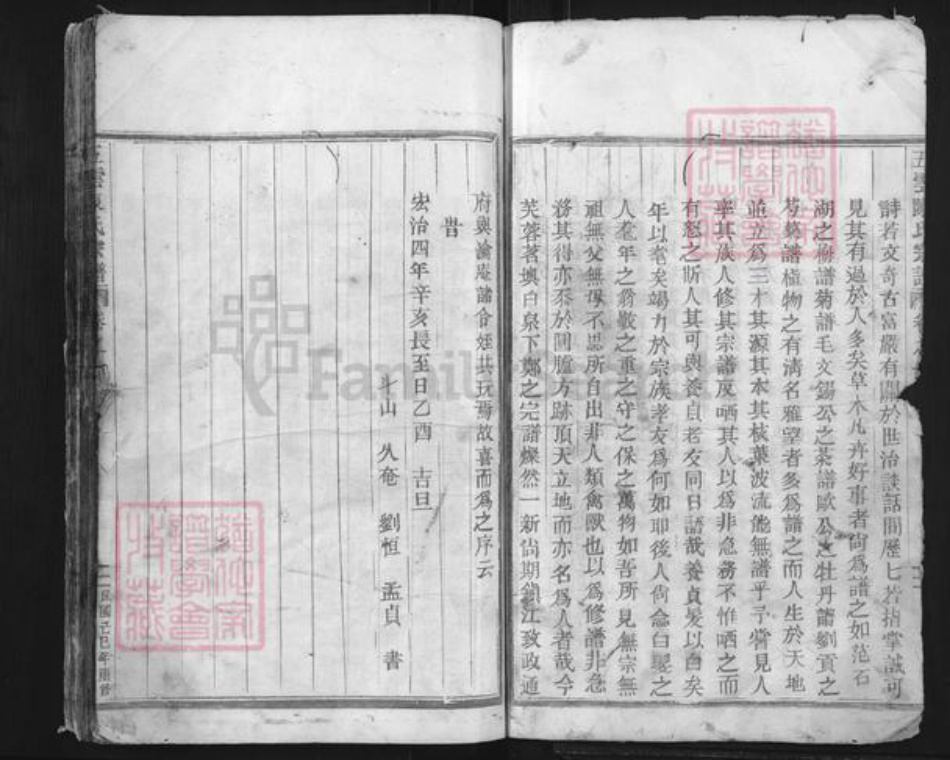 詩若文奇古富嚴有關於世治談話間歷匕若指掌誠可
見其有過於人多矣草木凡卉好事者尙爲譜之如范石
湖之梅譜菊譜毛文錫公之茶譜歐公之牡丹譜劉貢之
芍藥譜植物之有淸名雅望者多爲譜之而人生於天地
並立爲三才其源其本其枝葉波流能無譜乎予嘗見人
率其族人修其宗譜反哂其人以爲非急務不惟哂之而
有怒之斯人其可與養自老友同日語哉養貞髪以白矣
年以耄矣竭力於宗族孝友爲何如耶後人尙念曰髦之
人耄年之翁敬之重之守之保之萬物如吾所見無宗無
祖無父無母不思所自出非人類禽獸也以爲修譜非急
務其得亦忝於圓臚方跡頂天立地而亦名爲人者哉今
芙蓉茗墺白泉下鄭之完譜燦然一新尙期錦江致政通
府與淪庵諸侄姪共玩焉故喜而爲之序云
昔
宏治四年辛亥長至日乙酉 吉旦
斗山 久奄 劉恒 孟貞 書
五雲 氏宗譜
民國己巳年重修
FamilySearch